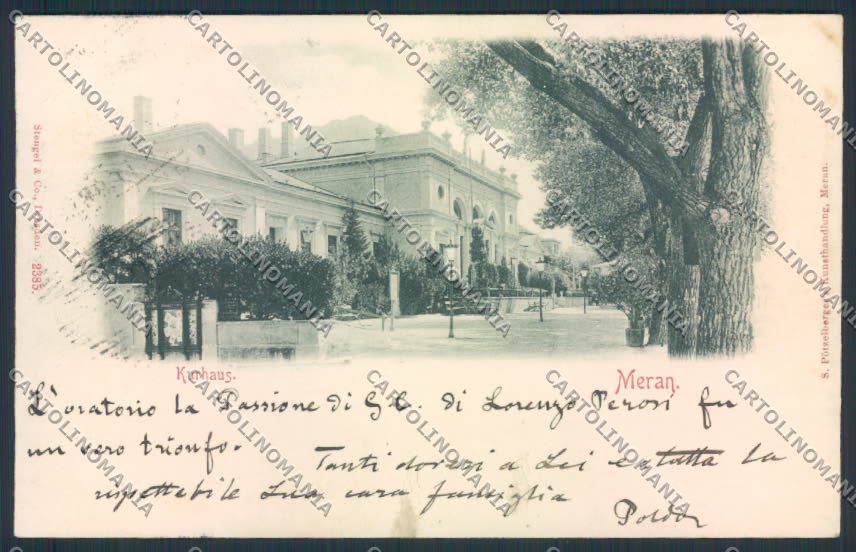 Stengel & Co., Dresden. 2385
S. Pötzelberger, Kunsthandlung, Meran.
Kurhaus.
Meran.
L'oratorio la Passione di G. C. di Lorenzo Perosi fu
un vero trionfo.
Tanti doveri a Lei e tutta la
rispettabile Sua cara famiglia
CARTOLINOMANIA